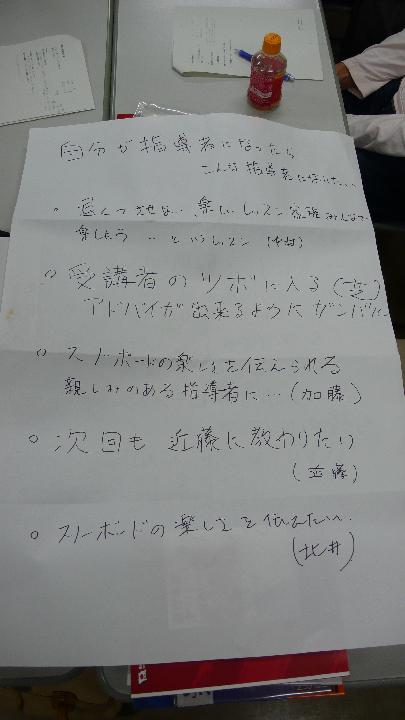 自分が指導者になったら
こんな指導者になりたい…
楽しいレッスン 家族みんなで
楽しもう … というレッスン
受講者のツボに入る
アドバイが出来るようにガンバル
スノーボードの楽しさを伝えられる
親しみのある指導者に…(加藤)
次回も 近藤に教わりたい
スノーボードの楽しさを伝えたい
(北井)